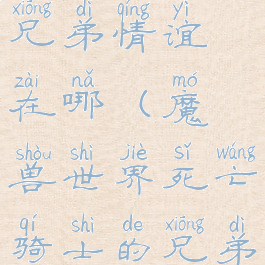 xiōng dì qíng yì
兄弟情谊
zài nǎ mó
在哪(魔
shòu shì jiè sǐ wáng
兽世界死亡
qí shì de xiōng dì
骑士的兄弟